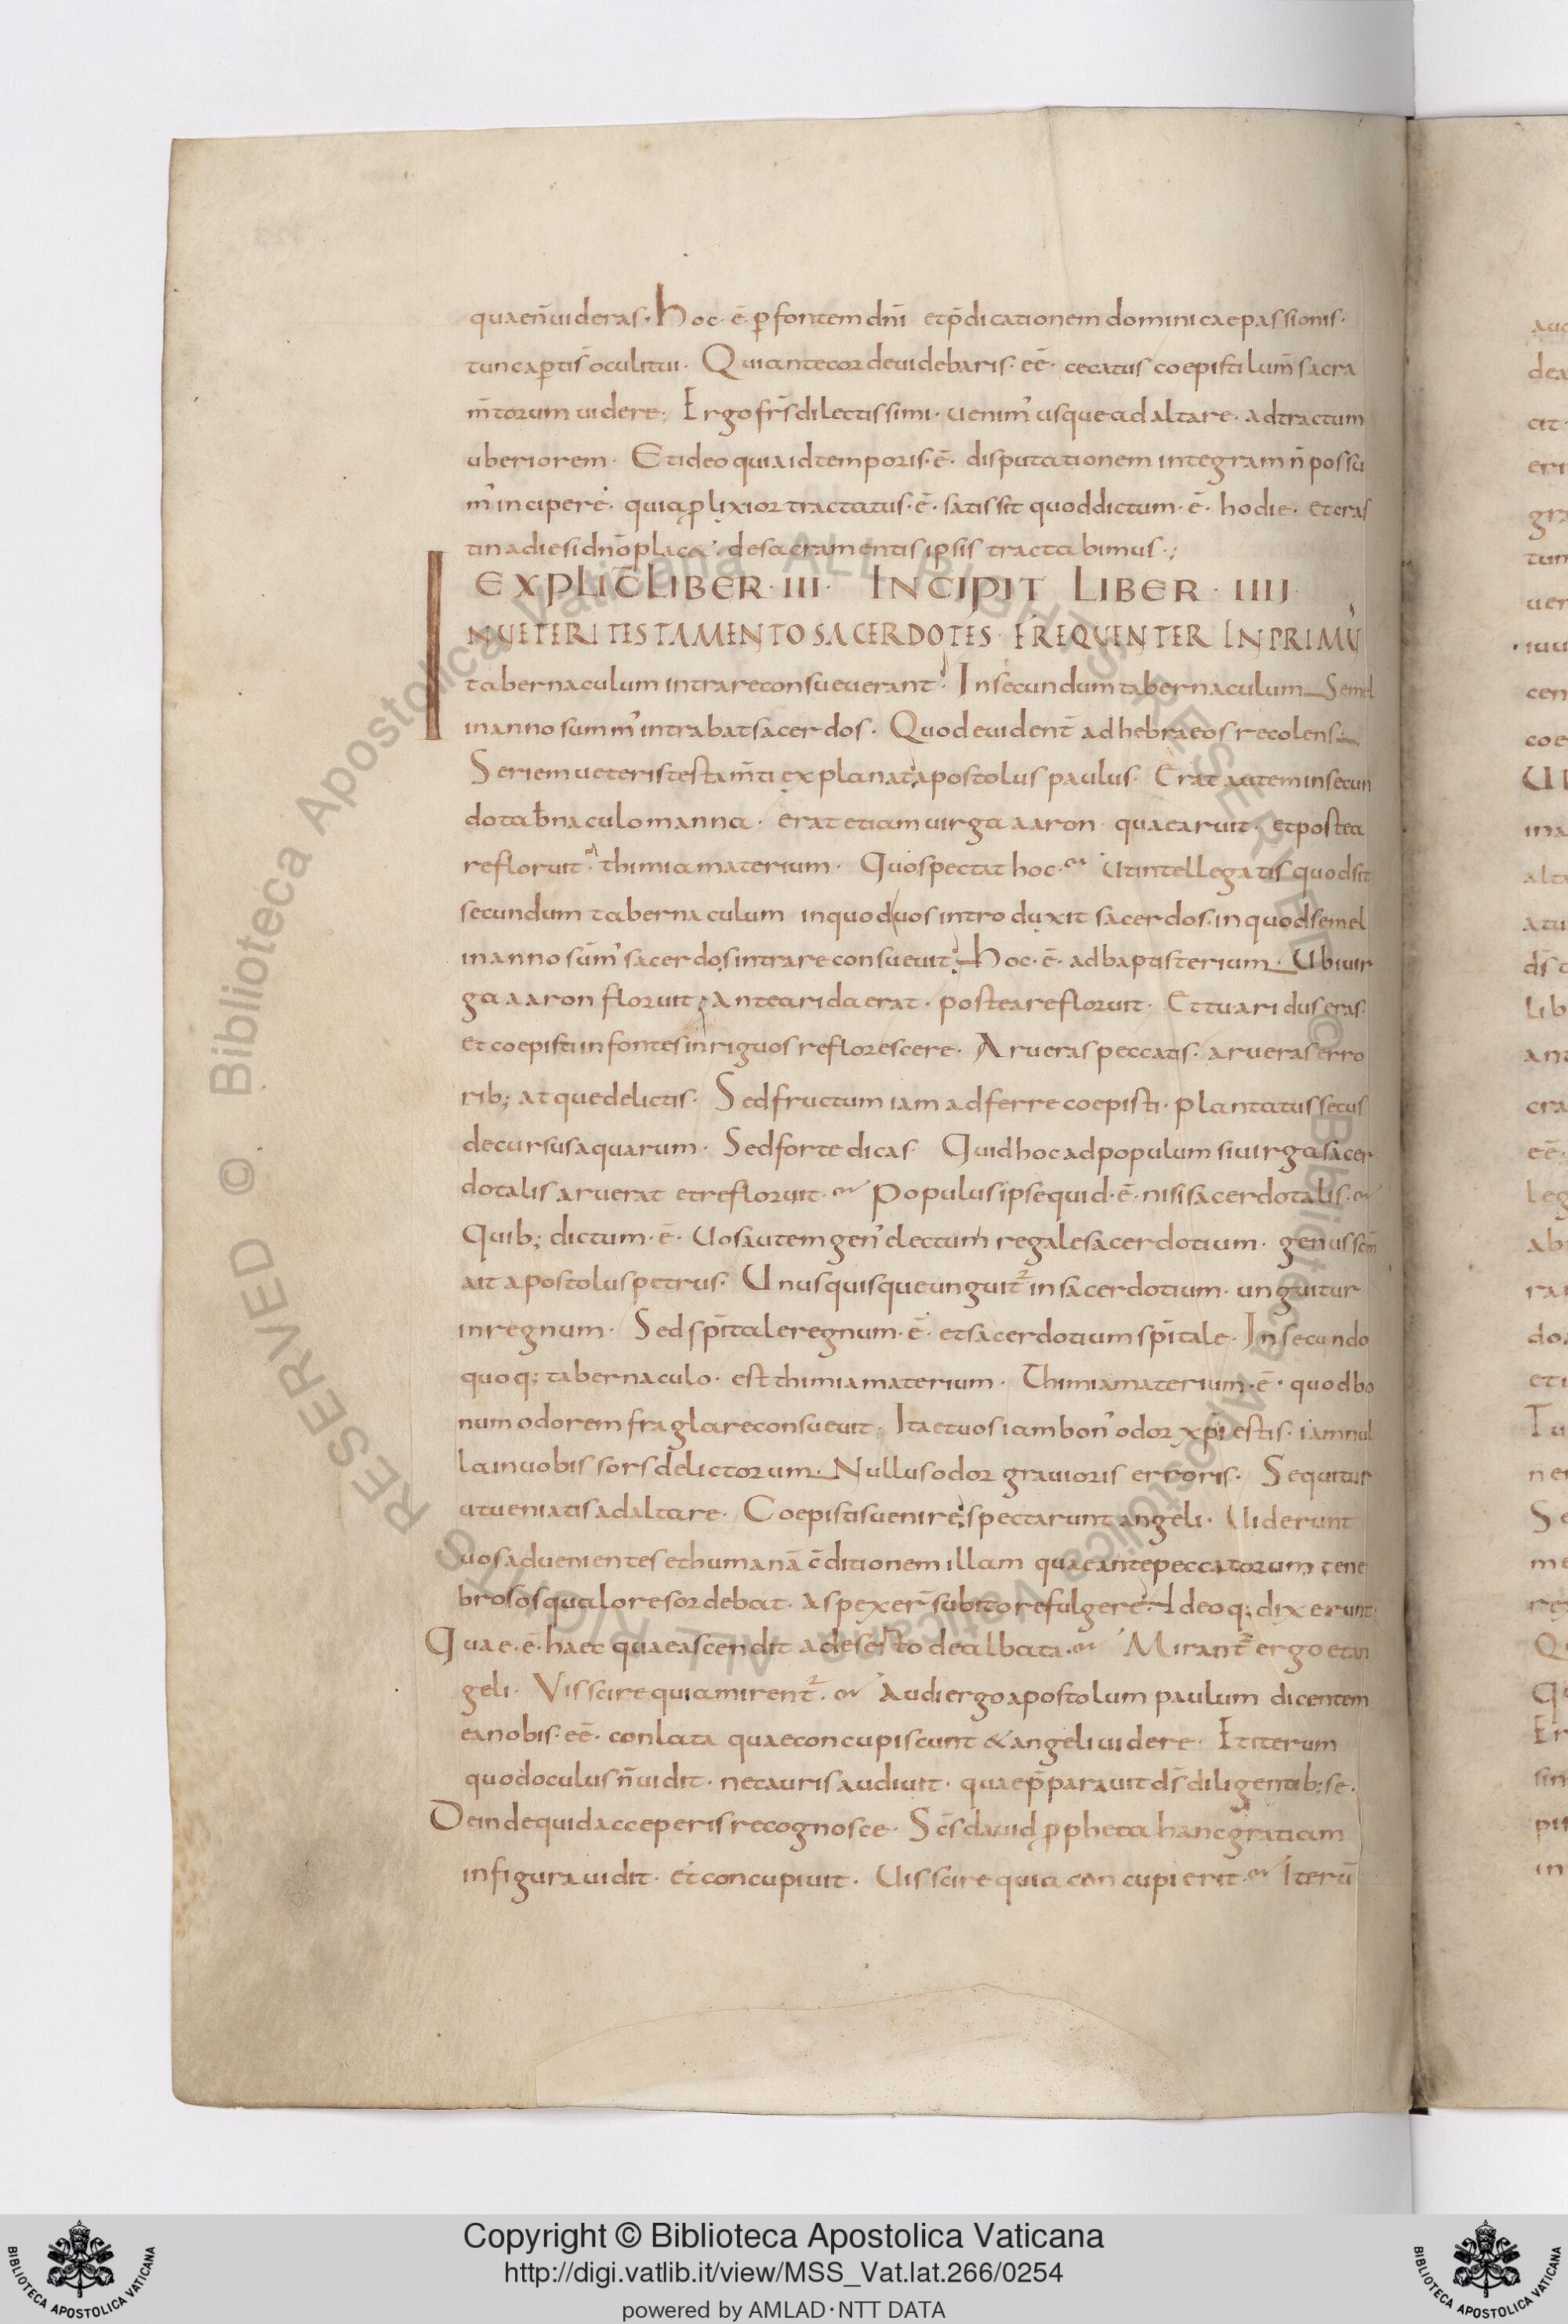 quae n̄ uideras · hoc · ē · ꝑ fontem dn̄i et p̄dicationem dominicae passionis ·
tunc aꝑtis̄ oculi tui · Qui ante corde uidebaris · eē · cecatus coepisti lum̄ sacra
m̄torum uidere ; Ergo frs̄ dilectissimi · uenim᾽ usque ad altare · ad tractum
uberiorem · Et ideo quia id temporis · ē · disputationem integram n̄ possu
m᾽ incipere · quia ꝓlixior tractatus · ē · satis sit quod dictum · ē · hodie · et cras
tina die si dn̄o placet · de sacramentis ipsis tractabimus · ;
EXPLIC̄ LIBER · III · INCIPIT LIBER · IIII ·
IN UETERI TESTAMENTO SACERDOTES · FREQUENTER IN PRIMŪ
tabernaculum intrare consueuerant · In secundum tabernaculum semel
in anno summ᾽ intrabat sacerdos · Quod euident̄ ad hebraeos recolens ·
Seriem ueteris testam̄ti explanat apostolus paulus · Erat autem in secun
do tab̄naculo manna · erat etiam uirga aaron · quae aruit · et postea
refloruit · thimiamaterium · Quo spectat hoc · Ut intellegatis quod sit
secundum tabernaculum in quod uos introduxit sacerdos · in quod semel
in anno sūm᾽ sacerdos intrare consueuit · hoc · ē · ad baptisterium · Ubi uir
ga aaron floruit · Antea arida erat · postea refloruit · Et tu aridus eras ·
et coepisti in fontes inriguos reflorescere · Arueras peccatis · arueras erro
rib; atque delictis · Sed fructum iam adferre coepisti · plantatus secus
decursus aquarum · Sed forte dicas · Quid hoc ad populum si uirga sacer
dotalis aruerat et refloruit · Populus ipse quid · ē · nisi sacerdotalis ·
Quib; dictum · ē · Uos autem gen᾽ electum regale sacerdotium · genus sc̄m
ait apostolus petrus · Unusquisque unguit᷑ in sacerdotium · unguitur
in regnum · Sed sp̄itale regnum · ē · et sacerdotium sp̄itale · In secundo
quoq; tabernaculo · est thimiamaterium · Thimiamaterium · ē · quod bo
num odorem fraglare consueuit · Ita et uos iam bon᾽ odor xp̄i estis · iam nul
la in uobis sors delictorum · Nullus odor grauioris erroris · Sequitur
ut ueniatis ad altare · Coepistis uenire spectarunt angeli · Uiderunt
uos aduenientes et humanā c̄ditionem illam quae ante peccatorum tene
broso squalore sordebat · aspexer̄ subito refulgere · Ideoq; dixerunt ·
Quae · ē · haec quae ascendit a deserto dealbata · Mirant᷑ ergo et an
geli · Vis scire quia mirent᷑ · Audi ergo apostolum paulum dicentem
ea nobis · eē · conlata quae concupiscunt & angeli uidere · Et iterum
quod oculus n̄ uidit · nec auris audiuit · quae p̄parauit ds̄ diligentib; se ·
Deinde quid acceperis recognosce · Sc̄s dauid ꝓpheta hanc gratiam
in figura uidit · et concupiuit · Uis scire quia concupierit · Iterū
Copyright © Biblioteca Apostolica Vaticana
http://digi.vatlib.it/view/MSS_Vat.lat.266/0254
powered by AMLAD·NTT DATA